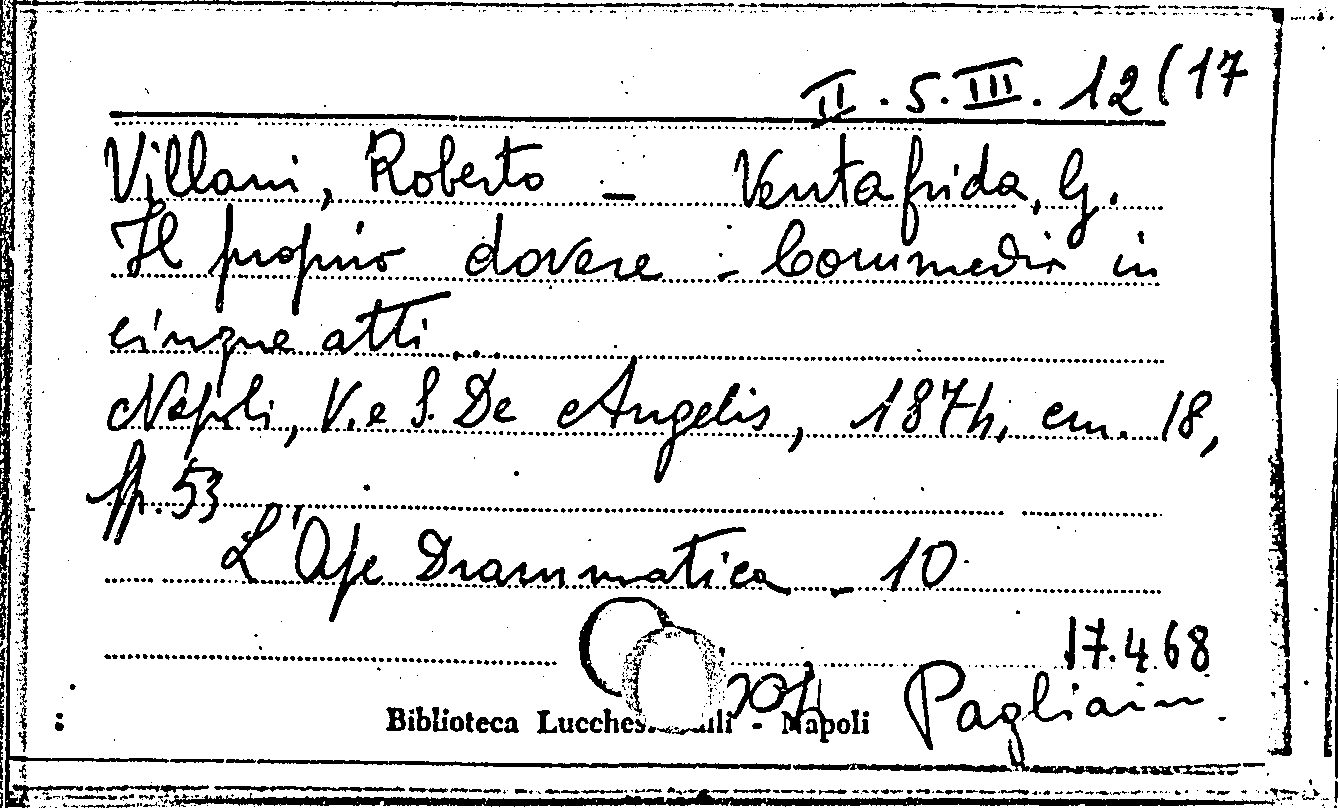 II. 5. III. 12(17
Villani, Roberto - Ventafrida, G.
Il proprio dovere - Commedia in
cinque atti...
Napoli, V. e S. De Angelis, 1874, cm. 18,
pp. 53
L'Ape Drammatica - 10
17.4.68
Biblioteca - Napoli Pagliain